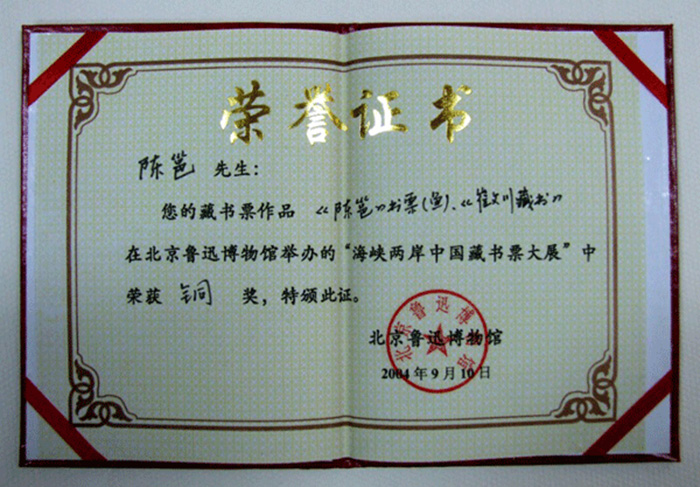 荣誉证书
陈邕 先生：
您的藏书票作品 《陈邕》书票(鱼)、《崔文川藏书》
在北京鲁迅博物馆举办的“海峡两岸中国藏书票大展”中
荣获 铜 奖，特颁此证。
北京鲁迅博物馆
北京鲁迅博物馆
2004年9月10日